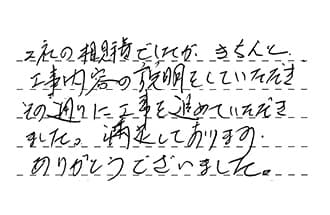 2社の相見積でしたが、きちんと
工事内容の説明をしていただき
その通りに工事を進めていただき
ました。満足しております。
ありがとうございました。